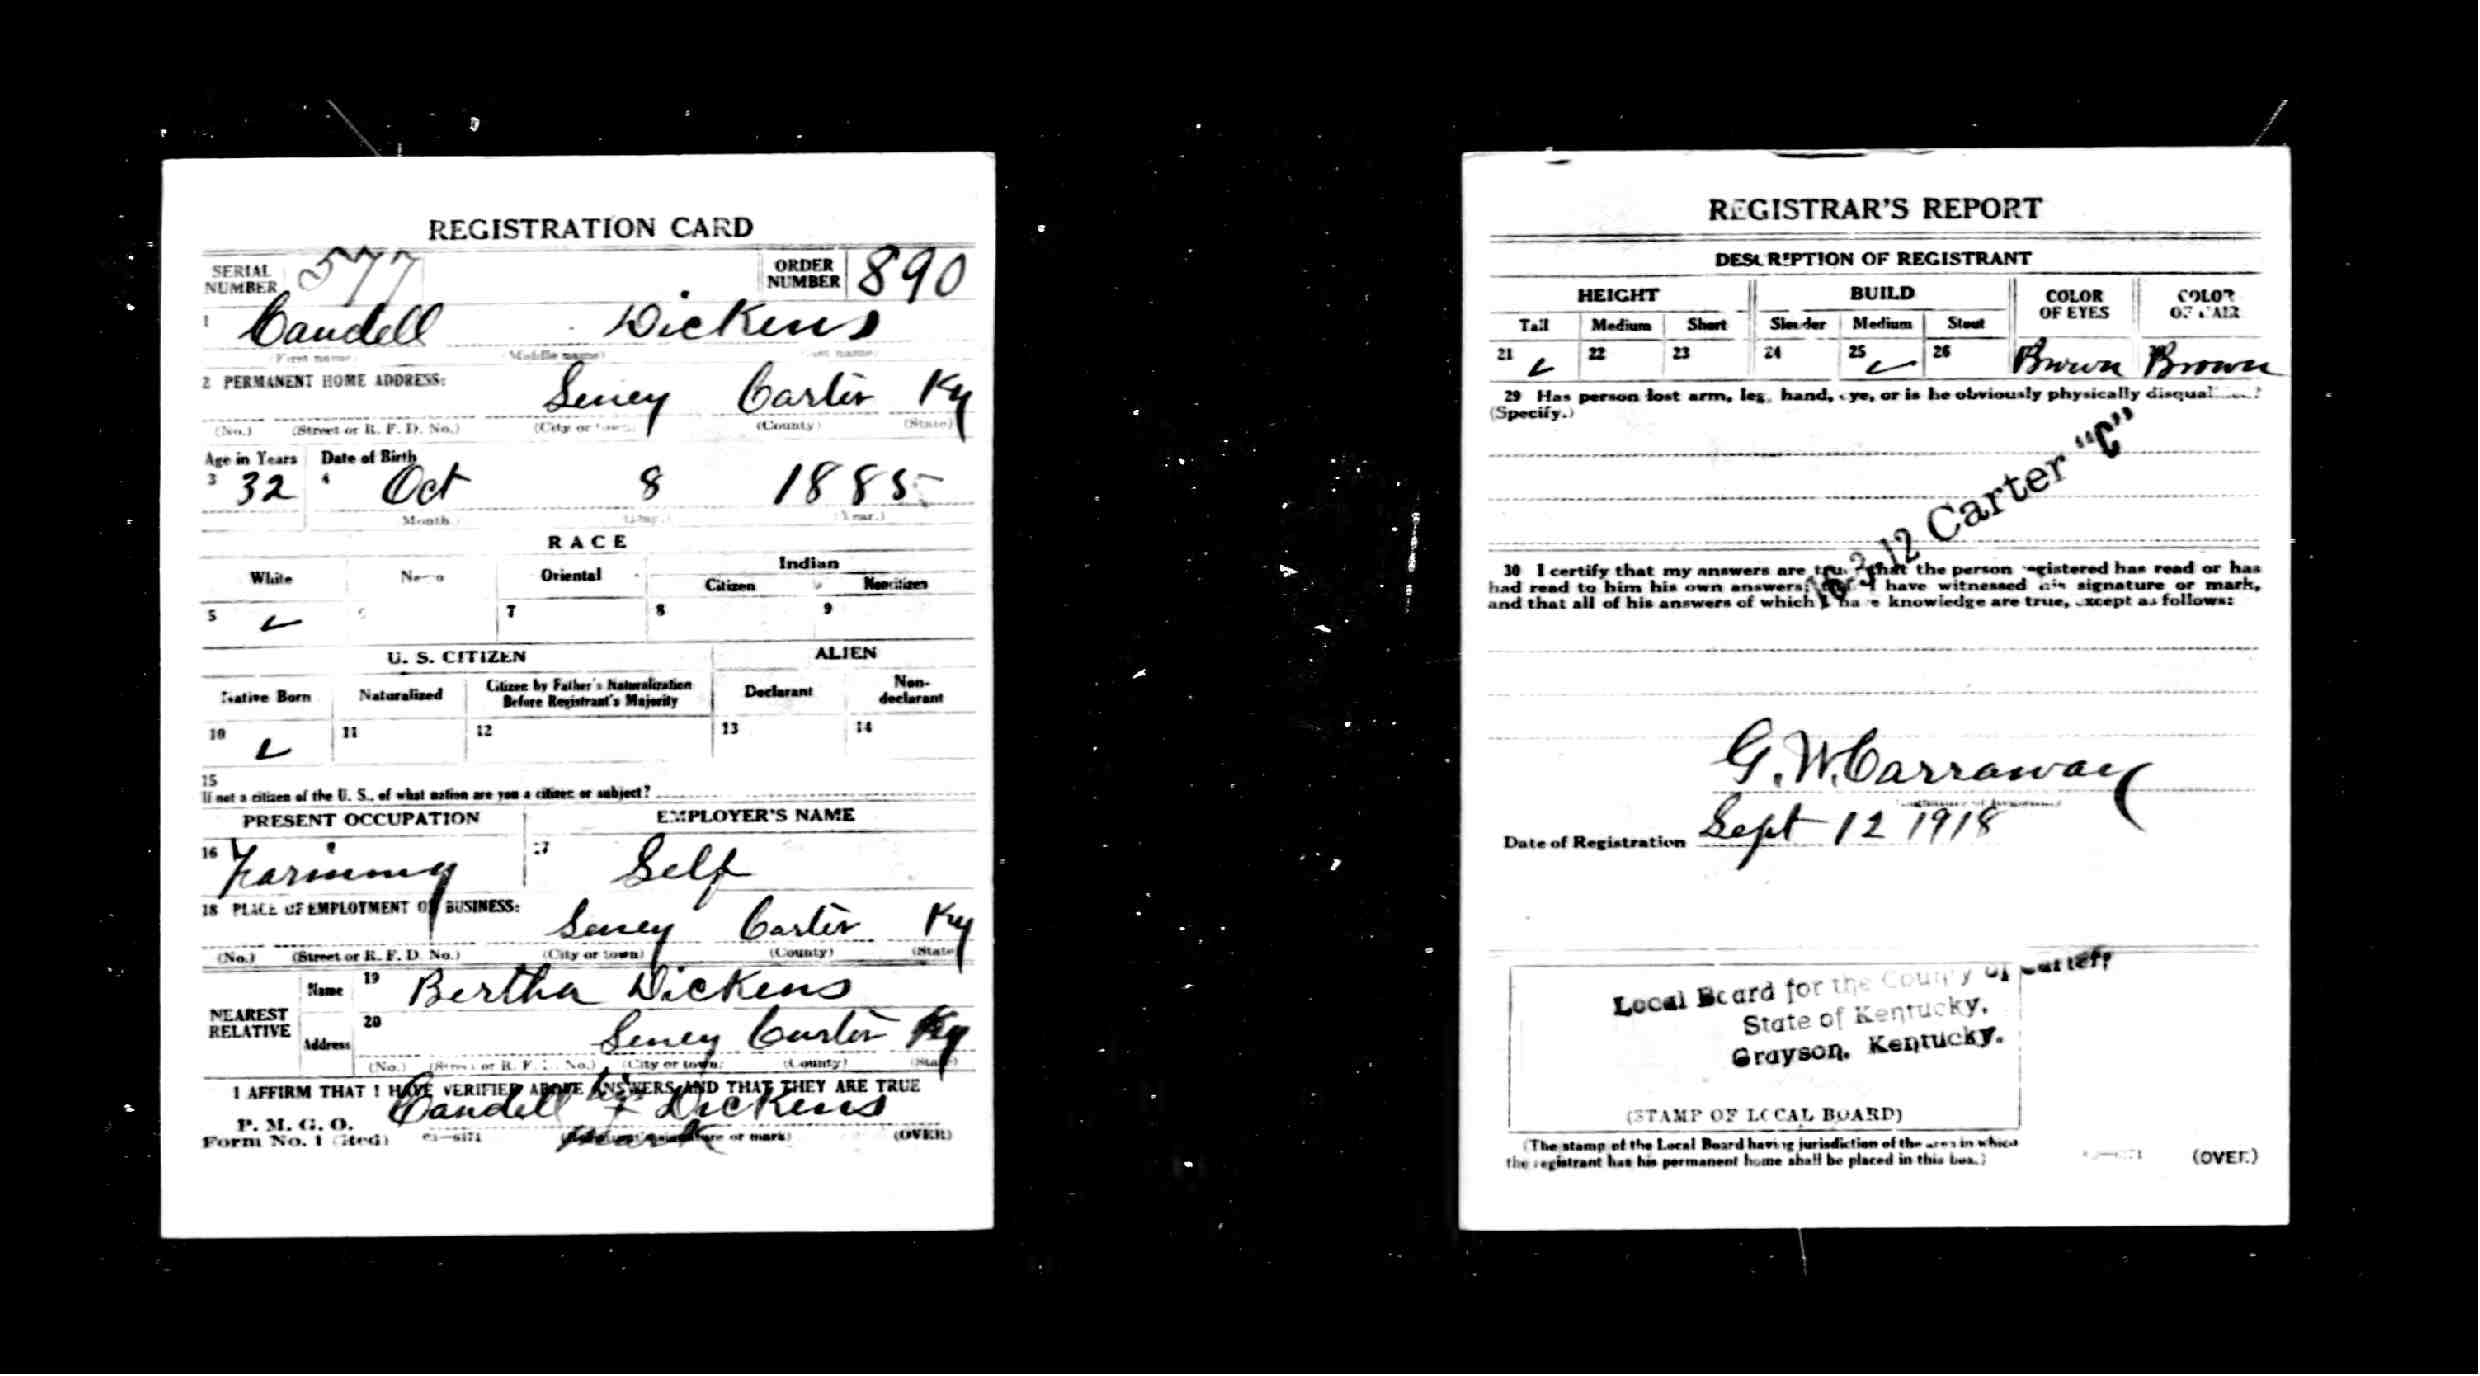 REGISTRATION CARD
SERIAL NUMBER 577 ORDER NUMBER 890
1 Caudell Dickens
(First name) (Middle name) (Last name)
2 PERMANENT HOME ADDRESS:
Seney Carter Ky
(No.) (Street or R. F. D. No.) (City or town) (County) (State)
Age in Years Date of Birth
3 32 4 Oct 8 1885
Month (Day.) (Year.)
RACE
White Negro Oriental Indian
Citizen Noncitizen
5 ✓ 6 7 8 9
U. S. CITIZEN ALIEN
Native Born Naturalized Citizen by Father's Naturalization Before Registrant's Majority Declarant Non-declarant
10 ✓ 11 12 13 14
15
If not a citizen of the U. S., of what nation are you a citizen or subject?
PRESENT OCCUPATION EMPLOYER'S NAME
16 Farming 17 Self
18 PLACE OF EMPLOYMENT OR BUSINESS:
Seney Carter Ky
(No.) (Street or R. F. D. No.) (City or town) (County) (State)
NEAREST RELATIVE
Name 19 Bertha Dickens
Address 20 Seney Carter Ky
(No.) (Street or R. F. D. No.) (City or town) (County) (State)
I AFFIRM THAT I HAVE VERIFIED ABOVE ANSWERS AND THAT THEY ARE TRUE
P. M. G. O.
Form No. 1 (Red) 03—6171
Caudell his x Dickens
mark
(Registrant's signature or mark) (OVER)
REGISTRAR'S REPORT
DESCRIPTION OF REGISTRANT
HEIGHT BUILD COLOR OF EYES COLOR OF HAIR
Tall Medium Short Slender Medium Stout
21 ✓ 22 23 24 25 ✓ 26 Brown Brown
29 Has person lost arm, leg, hand, eye, or is he obviously physically disqualified?
(Specify.)
16-3-12 Carter "C"
30 I certify that my answers are true; that the person registered has read or has
had read to him his own answers; that I have witnessed his signature or mark,
and that all of his answers of which I have knowledge are true, except as follows:
G. W. Carraway
(Signature of Registrar)
Date of Registration Sept 12 1918
Local Board for the County of Carter,
State of Kentucky,
Grayson, Kentucky.
(STAMP OF LOCAL BOARD)
(The stamp of the Local Board having jurisdiction of the area in which
the registrant has his permanent home shall be placed in this box.)
03—6171 (OVER)